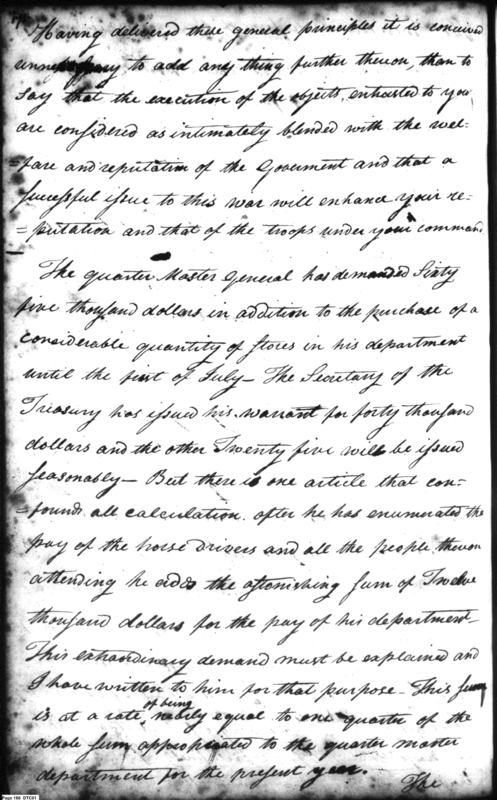 Having delivered these general principles it is conceived
unnecessary to add any thing further thereon, than to
say that the execution of the objects, entrusted to you
are considered as intimately blended with the wel-
=fare and reputation of the Goverment and that a
successful issue to this war will enhance your re-
=putation and that of the troops under your command.
The quarter Master General has demanded Sixty
five thousand dollars in addition to the purchase of a
considerable quantity of stores in his department
until the first of July— The Secretary of the
Treasury has issued his warrant for forty thousand
dollars and the other Twenty five will be issued
seasonably— But there is one article that con-
=founds all calculation. after he has enumerated the
pay of the horse drivers and all the people thereon
attending he adds the astonishing sum of Twelve
thousand dollars for the pay of his department—
This extraordinary demand must be explained and
I have written to him for that purpose— This sum
of being
is at a rate, nearly equal to one quarter of the
whole sum appropriated to the quarter master
department for the present year.
The
Page 186 DTC01